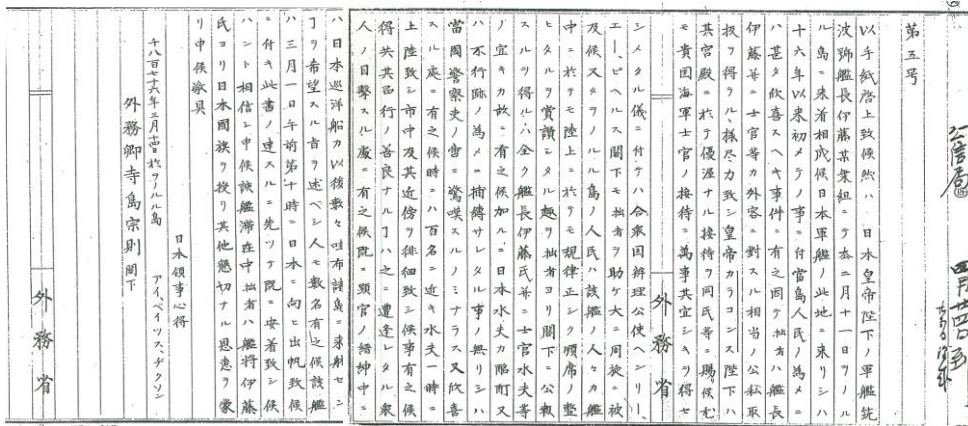 第五号
以手紙啓上致候然ハ日本皇帝陛下ノ軍艦筑
波号艦長伊藤某乗組ニテ去ニ月十一日ヲノル
ル島ニ来着相成候日本軍艦ノ此地ニ来リシハ
十六年以来初メテノ事ニ付當島人民ノ為メニ
ハ甚タ欣喜スヘキ事件ニ有之同テ拙者ハ艦長
伊藤并ニ士官等カ外客ニ對スル相当ノ公私取
扱ヲ得ラル、様尽力致シ皇帝カラコンス陛下ハ
其宮殿ニ於テ優渥ナル接待ヲ同氏等ニ賜候尤
モ貴国海軍士官ノ接待ニ萬事其宜シキヲ得セ
外務省
シメタル儀ニ付テハ合衆国辨理公使ヘンリー、
エー、ピヘルス閣下モ拙者ヲ助ケ大ニ周旋ニ被
及候又ヲノルル島ノ人民ハ該艦ノ人々カ艦
中ニ於テモ陸上ニ於テモ規律正シク順席ノ整
ヒタルヲ賞讃シタル趣ヲ拙者ヨリ閣下ニ公報
スルヲ得ルハ全ク艦長伊藤氏并ニ士官水夫等
ノ宜キカ故ニ有之候加ルニ日本水夫カ酩酊又
ハ不行跡ノ為メニ捕縛サレタル事ノ無リシハ
當國警察吏ノ啻ニ驚嘆スルノミナラス又欣喜
スル處ニ有之候時ニハ百名ニ近キ水夫一時ニ
上陸致シ市中及其近傍ヲ徘徊致シ候事有之候
得共其品行ノ善良ナル丁ハ之ニ遭逢シタル衆
人ノ目撃スル處ニ有之候既ニ顕官ノ縉紳中ニ
ハ日本巡洋船カ以後数々哇布諸島ニ来航セン
丁ヲ希望スル旨ヲ述ベシ人モ数名有之候該艦
ハ三月一日午前第十時ニ日本ニ向ヒ出帆致候
ニ付キ此書ノ達スルニ先ツテ既ニ安着致シ候
ハント相信シ申候該艦滞在中拙者ハ艦将伊藤
氏ヨリ日本國旗ヲ授リ其他懇切ナル恩恵ヲ蒙
リ申候敬具
日本領事心得
千八百七十六年三月十四日於ヲノルル島
アイ、ベイツス、ヂクソン
外務卿寺島宗則閣下
外務省